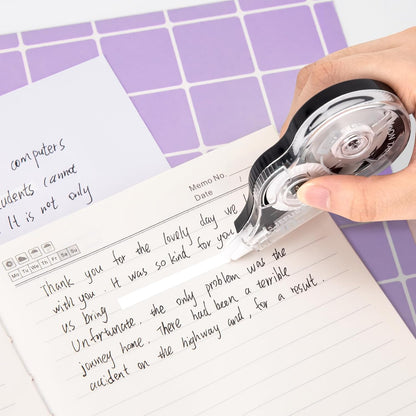 computers
students cannot
. It is not only
Memo No.
Date
Mo Tu We Th Fr Sa Su
Thank you for the lovely day we
with you. It was so kind for you
us bring
Unfortunate. the only problem was the
journey home. There had been a terrible
accident on the highway and, for a result.